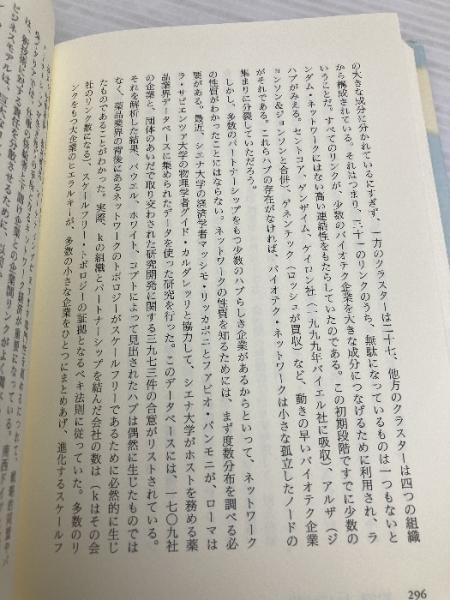 の大きな成分に分かれているにすぎず、一方のクラスターは二十七、他方のクラスターは四つの組織
から構成されている。それはつまり、三十一のリンクのうち、無駄になっているものは一つもないと
いうことだ。すべてのリンクが、少数のバイオテク企業を大きな成分につなげるために利用され、ラ
ンダム・ネットワークにはない高い連結性をもたらしていたのである。この初期段階ですでに少数の
ハブがみえる。セントコア、ゲンザイム、ケイロン社（一九九九年バイエル社に吸収）、アルザ（ジ
ョンソン＆ジョンソンと合併）、ゲネンテック（ロッシュが買収）など、動きの早いバイオテク企業
がそれである。これらハブの存在がなければ、バイオテク・ネットワークは小さな孤立したノードの
集まりに分裂していただろう。
しかし、多数のパートナーシップをもつ少数のハブらしき企業があるからといって、ネットワーク
の性質がわかったことにはならない。ネットワークの性質を知るためには、まず度数分布を調べる必
要がある。最近、シエナ大学の経済学者マッシモ・リッカボニとファビオ・パンモニが、ローマは
ラ・サピエンツァ大学の物理学者グイド・カルダレッリと協力して、シエナ大学がホストを務める薬
品業界データベースに集められたデータを使った研究を行った。このデータベースには、一七〇九社
の企業と、団体のあいだで取り交わされた研究開発に関する三九七三件の合意がリストされている。
それを解析した結果、パウエル、ホワイト、コプトによって見出されたハブは偶然に生じたものでは
なく、薬品業界の背後にあるネットワークのトポロジーがスケールフリーであるために必然的に生じ
たものであることがわかった。実際、kの組織とパートナーシップを結んだ会社の数は（kはその会
社のリンク数になる）、スケールフリー・トポロジーの証拠となるべキ法則に従っていた。多数のリ
ンクをもつ大企業のヒエラルキーが、多数の小さな企業をひとつにまとめあげ、進化するスケールフ
296